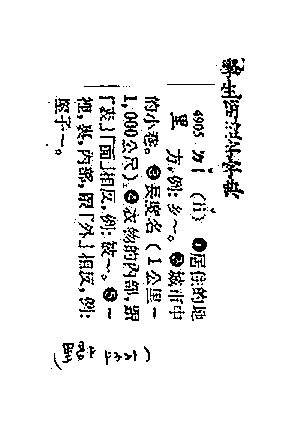 學生
6905 ㄌㄧˇ (lǐ) ❶居住的地
里 方,例:乡~。❷城市中
的小巷。❸長度名(1公里=
1,000公尺)。❹衣物的內部,跟
「表」「面」相反,例:被~。❺=
裡,裏,內部,跟「外」相反,例:
屋子~。